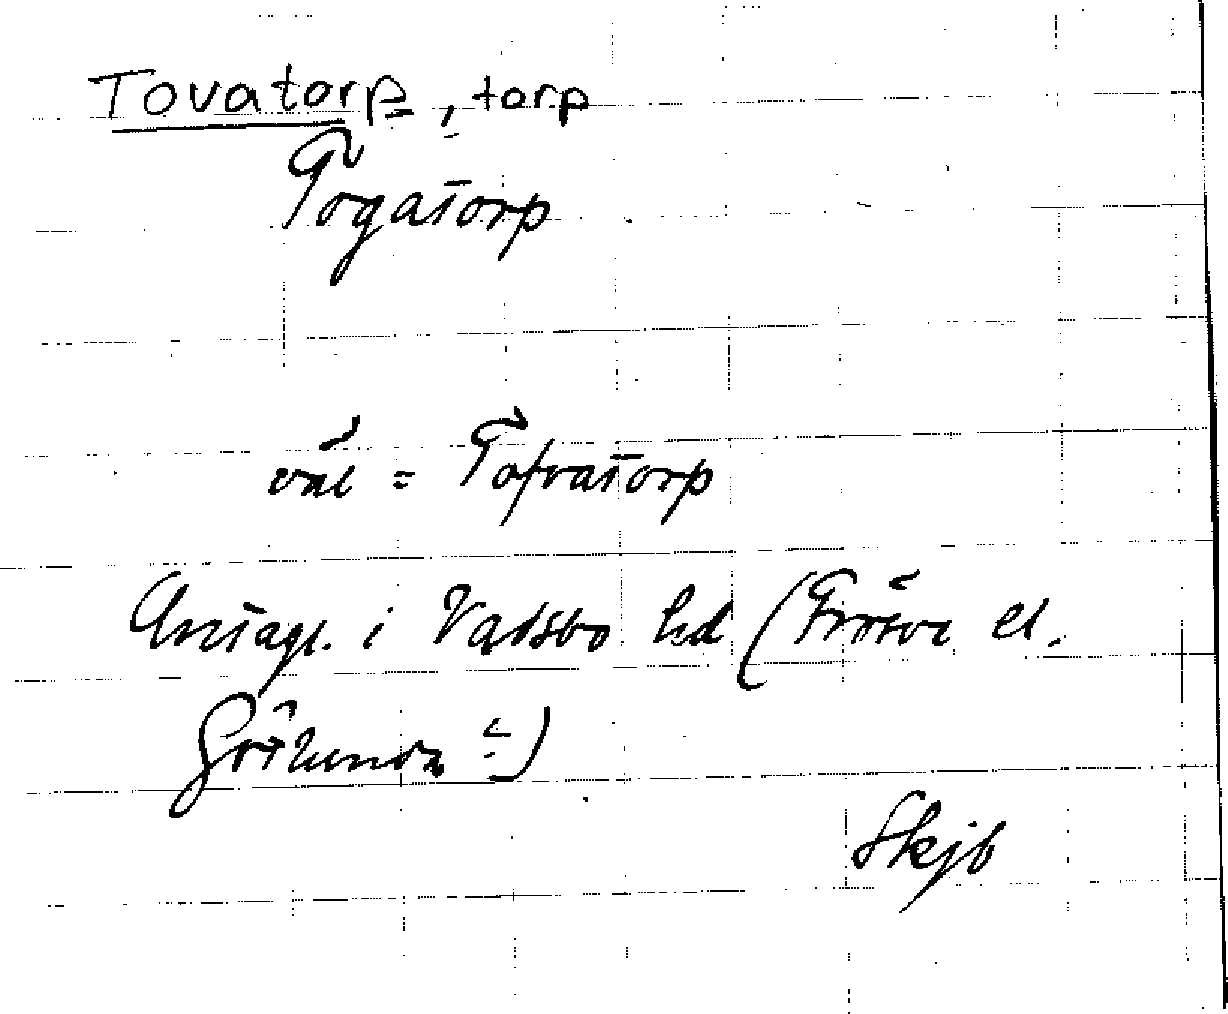 Tovatorp, torp
Togatorp
väl = Tofvatorp
Antagl. i Vadsbo hd (Frösve el.
Grökunda ?)
Skjb